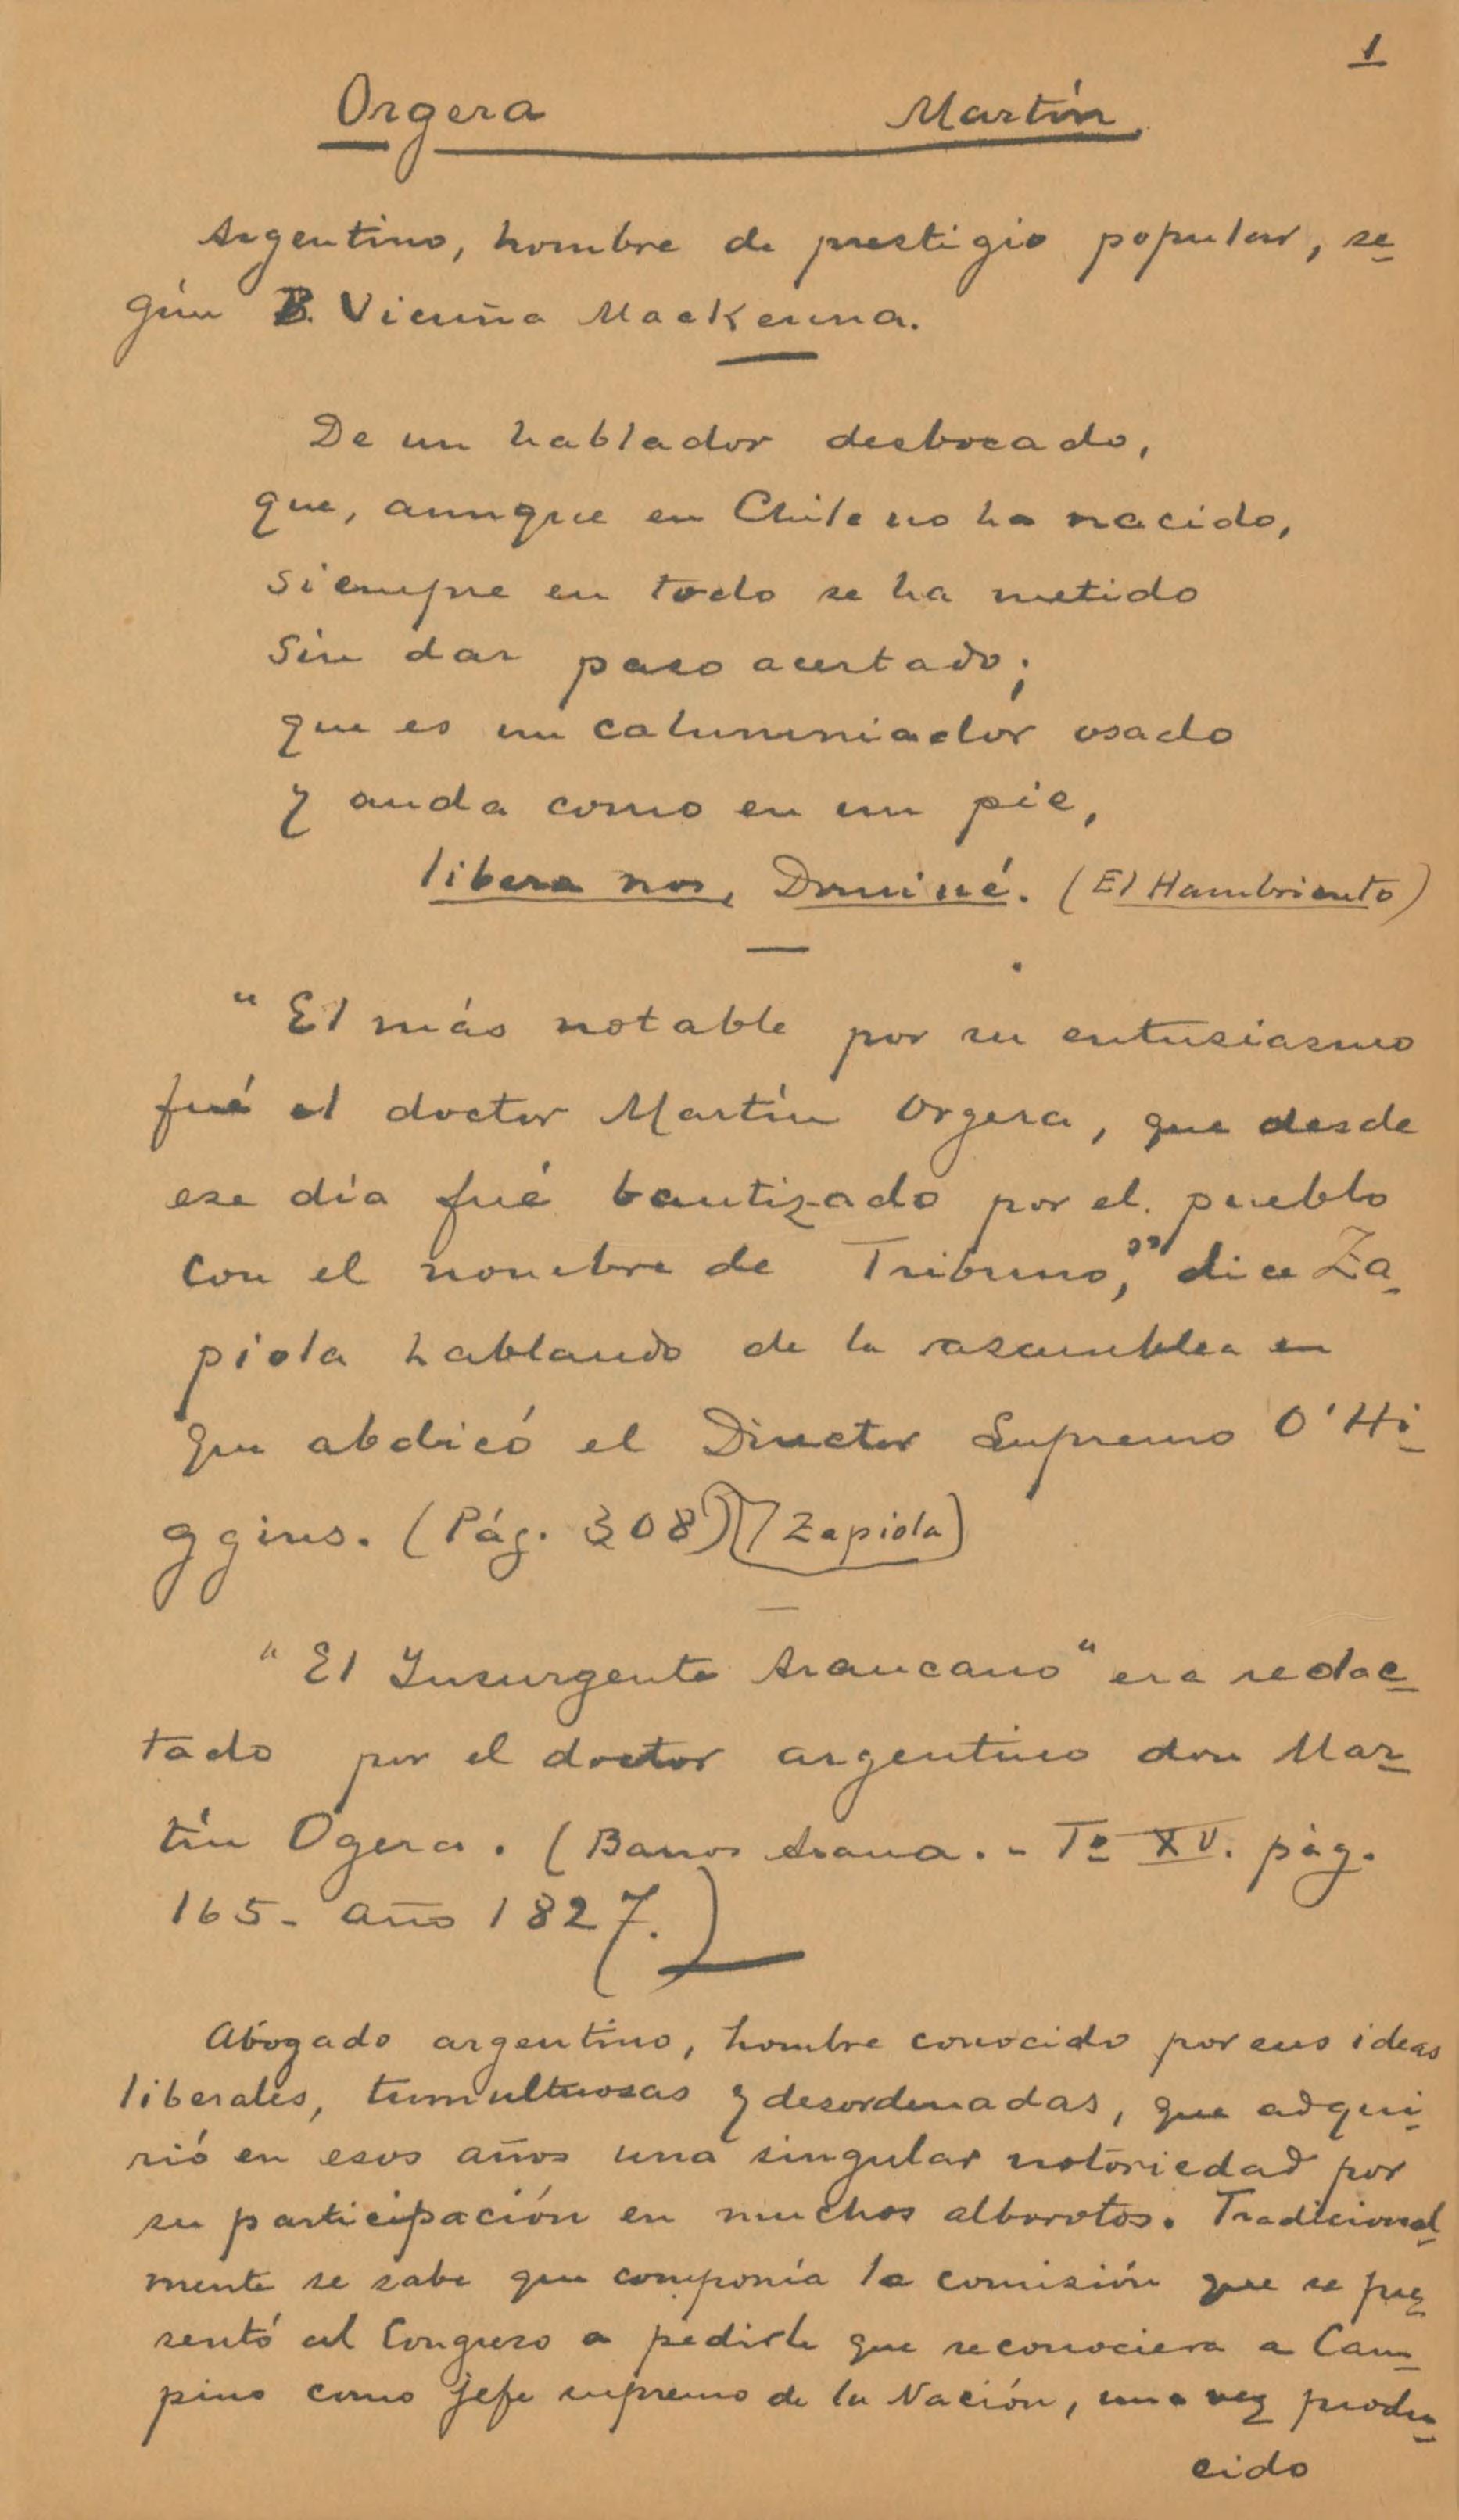 1
Orgera Martín.
Argentino, hombre de prestigio popular, se-
gún B. Vicuña Mackenna.
De un hablador desbocado,
que, aunque en Chile no ha nacido,
siempre en todo se ha metido
sin dar paso acertado;
que es un calumniador osado
y anda como en un pie,
libera nos, Dominé. (El Hambriento)
"El más notable por su entusiasmo
fué el doctor Martín Orgera, que desde
ese día fué bautizado por el pueblo
con el nombre de Tribuno," dice Za-
piola hablando de la asamblea en
que abdicó el Director Supremo O'Hi-
ggins. (Pág. 308) (Zapiola)
"El Insurgente Araucano" era redac-
tado por el doctor argentino don Mar-
tín Ogera. (Barros Arana. - To XV. pág.
165 - año 1827.)
Abogado argentino, hombre conocido por sus ideas
liberales, tumultuosas y desordenadas, que adqui-
rió en esos años una singular notoriedad por
su participación en muchos alborotos. Tradicional-
mente se sabe que componía la comisión que se pre-
sentó al Congreso a pedirle que reconociera a Cam-
pino como jefe supremo de la Nación, una vez produ-
cido